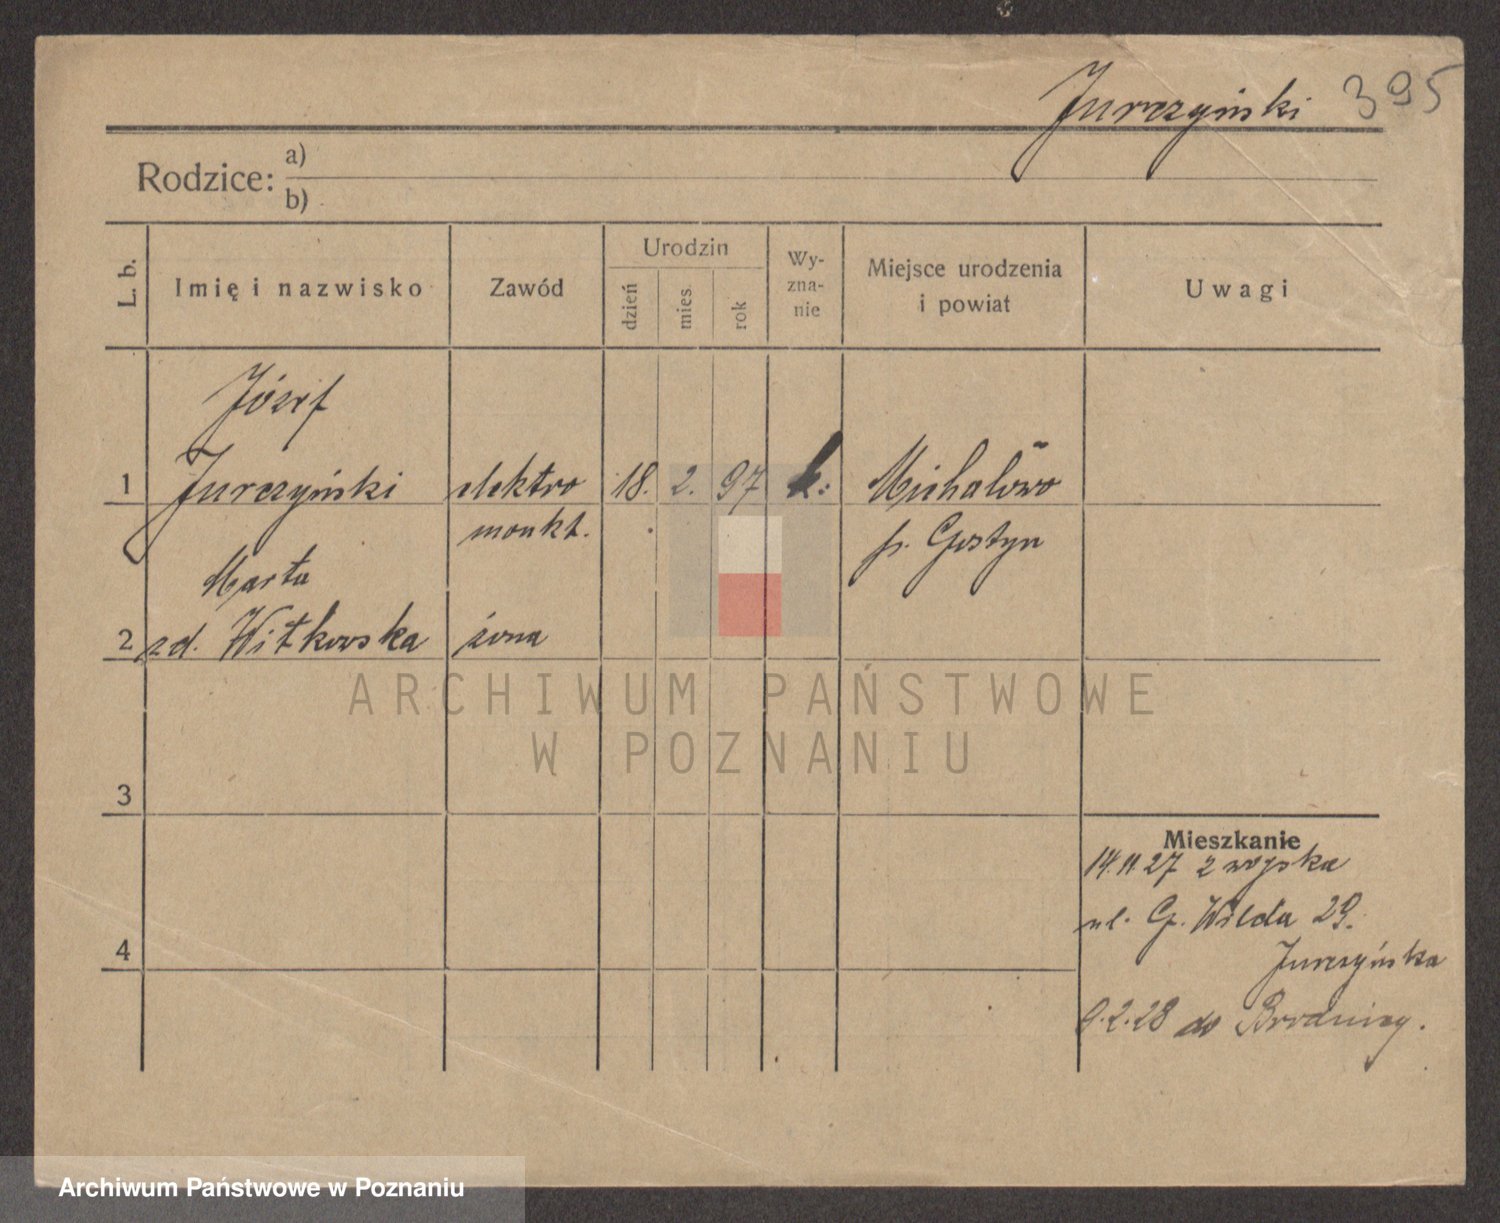 Jurczyński 395
Rodzice: a)
b)
L. b.
Imię i nazwisko
Zawód
Urodzin
dzień
mies.
rok
Wy-
zna-
nie
Miejsce urodzenia
i powiat
Uwagi
Józef
1 Jurczyński elektro 18. 2. 97 k: Michałowo
mont. p. Gostyn
Marta
2 zd. Witkowska żona
ARCHIWUM PAŃSTWOWE
W POZNANIU
3
4
Mieszkanie
14.11 27 z wojska
ul. G. Wilda 29.
Jurczyńska
9.2.28 do Brodnicy.
Archiwum Państwowe w Poznaniu